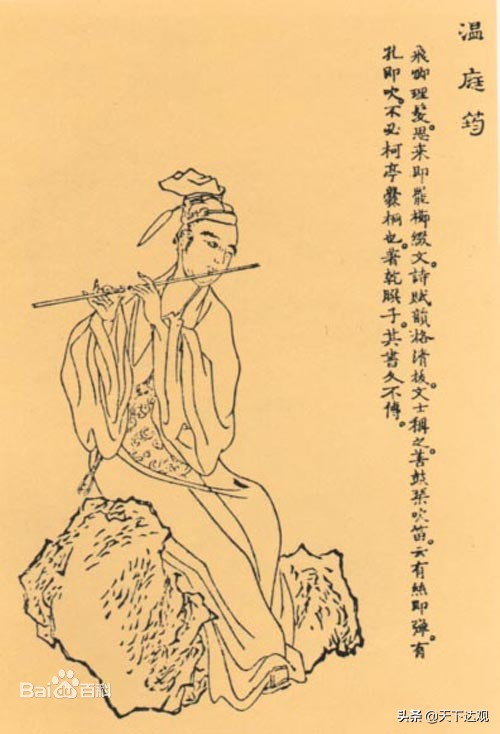 温庭筠
飛卿理髮思来即罷櫛綴文。詩賦韻格清拔。文士稱之。善鼓琴吹笛。云有絲即彈。有
孔即吹。不必柯亭爨桐也。著乾𦠆子。其書久不傳。
Bai百科
头条 @天下达观